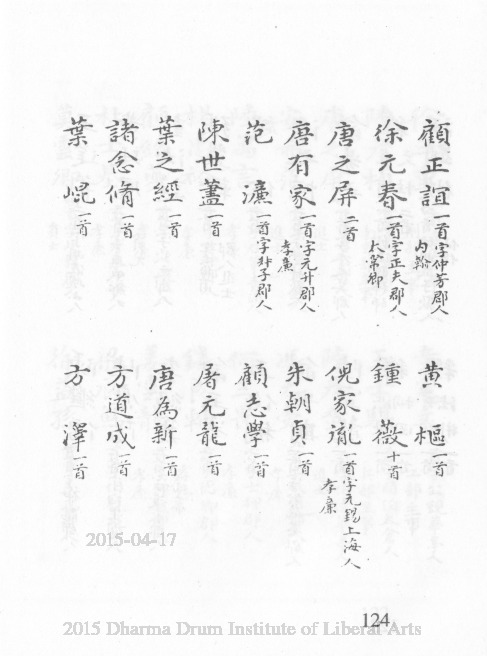 顧正誼一首字仲芳郡人內翰
黃樞一首
徐元春一首字正夫郡人太常卿
鍾薇十首
唐之屏二首
倪家胤一首字元錫上海人孝廉
唐有家一首字元升郡人孝廉
朱朝貞一首
范濂一首字叔子郡人
顧志學一首
陳世藎一首
屠元龍一首
葉之經一首
唐為新一首
諸念脩一首
方道成一首
葉崐一首
方澤一首
2015-04-17
124
2015 Dharma Drum Institute of Liberal Arts